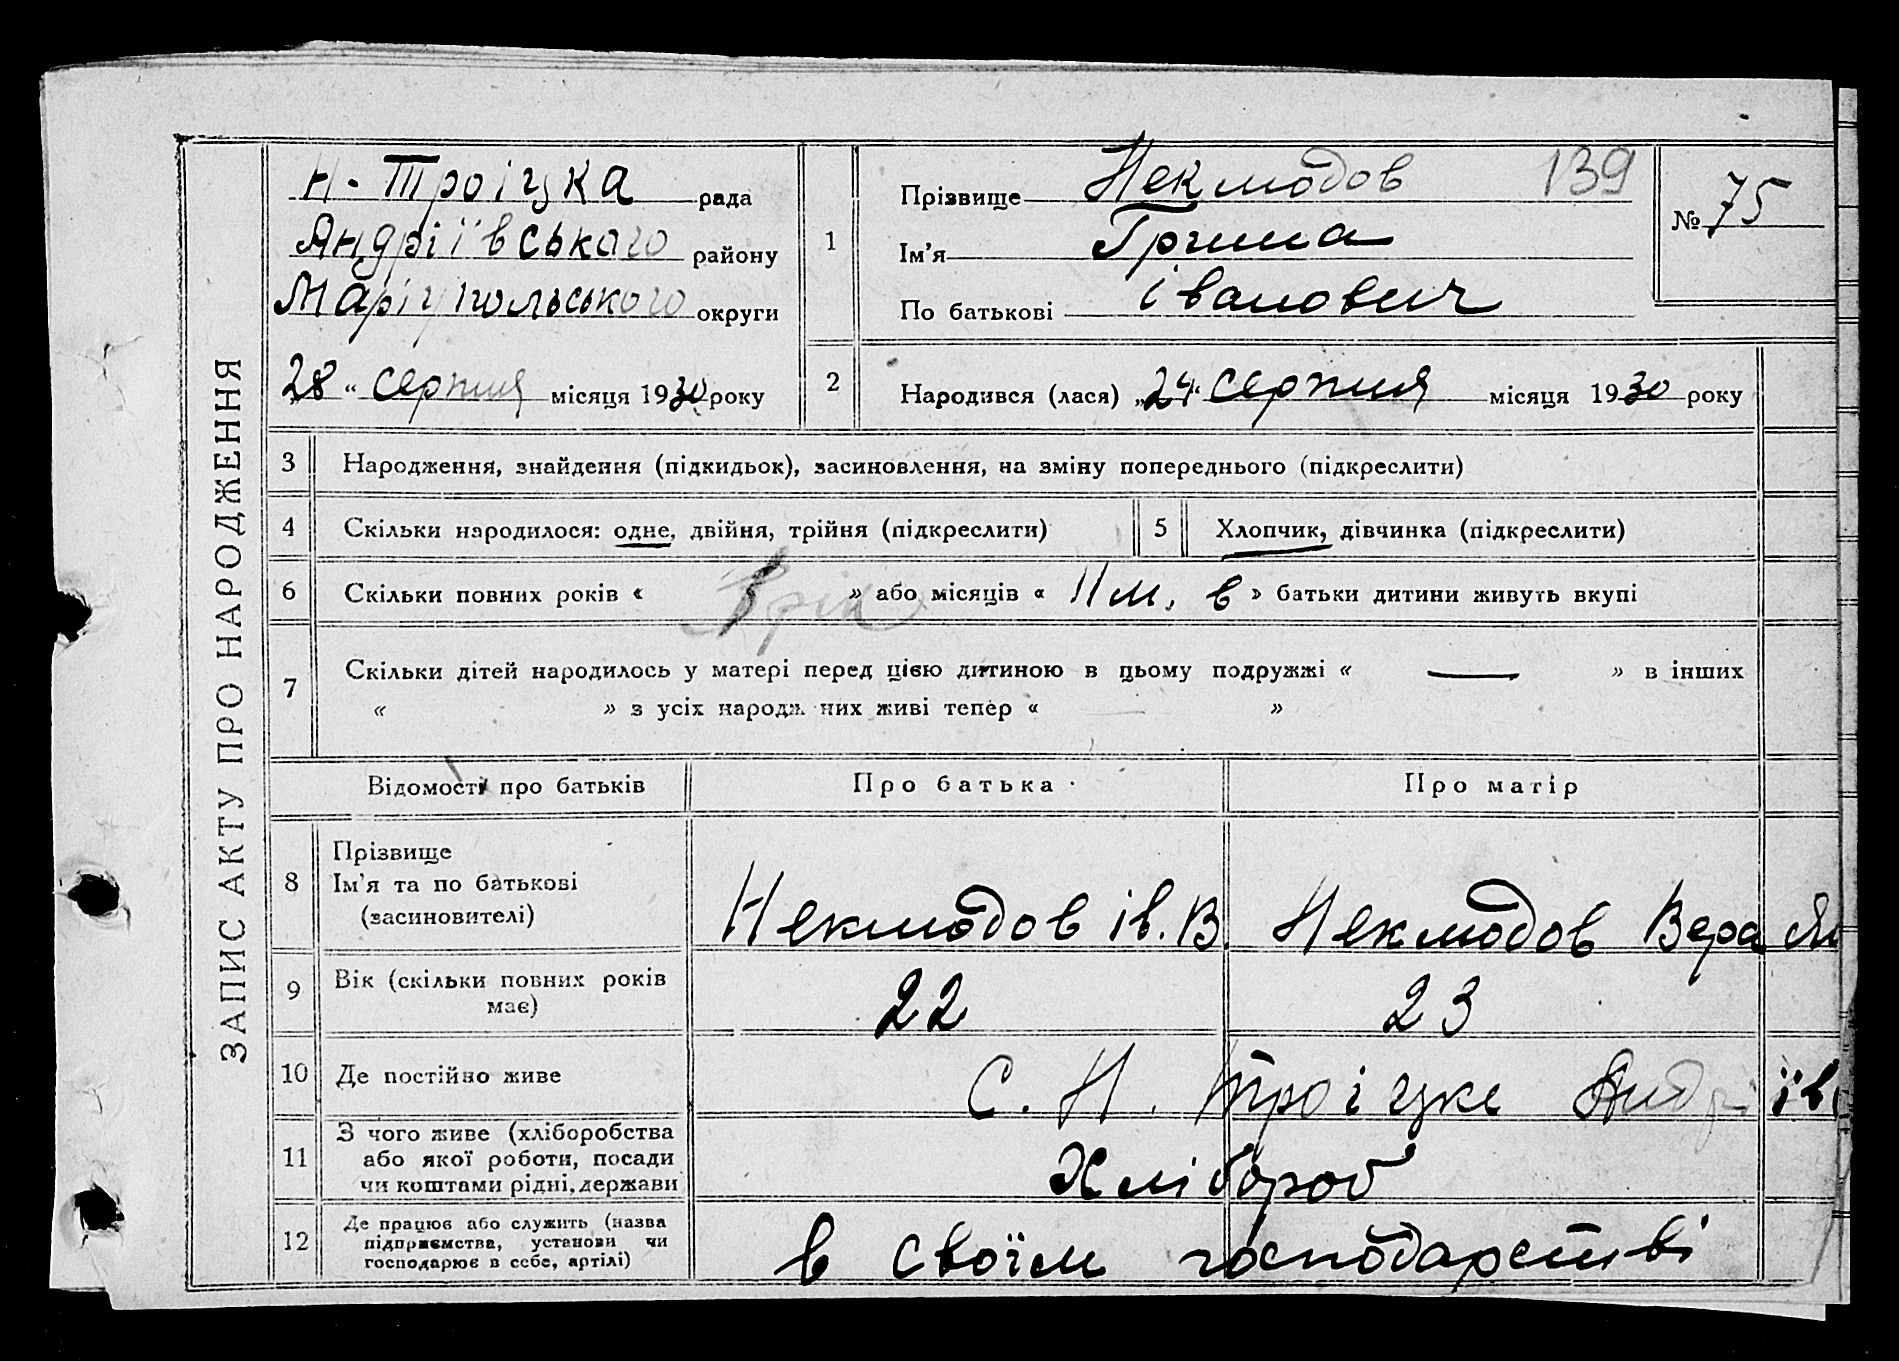 ЗАПИС АКТУ ПРО НАРОДЖЕННЯ
Н-Троіцка рада
Андріївського району
Маріупольського округи
28 „ серпня місяця 1930 року
1
Прізвище Некмодов 139
Ім'я Гриша
По батькові іванович
№ 75
2
Народився (лася) „24" серпня місяця 1930 року
3 Народження, знайдення (підкидьок), засиновлення, на зміну попереднього (підкреслити)
4 Скільки народилося: одне, двійня, трійня (підкреслити)
5 Хлопчик, дівчинка (підкреслити)
6 Скільки повних років « » або місяців « 11 м, в » батьки дитини живуть вкупі
7 Скільки дітей народилось у матері перед цією дитиною в цьому подружжі « — » в інших
« » з усіх народж них живі тепер « »
Відомості про батьків
Про батька
Про матір
8 Прізвище
Ім'я та по батькові
(засиновителі)
Некмодов ів. В.
Некмодов Вера
9 Вік (скільки повних років
має)
22
23
10 Де постійно живе
С. Н. Троіцке Андріїв
11 З чого живе (хліборобства
або якої роботи, посади
чи коштами рідні, держави
Хлібороб
12 Де працює або служить (назва
підприємства, установи чи
господарює в себе, артілі)
в своїм господарстві